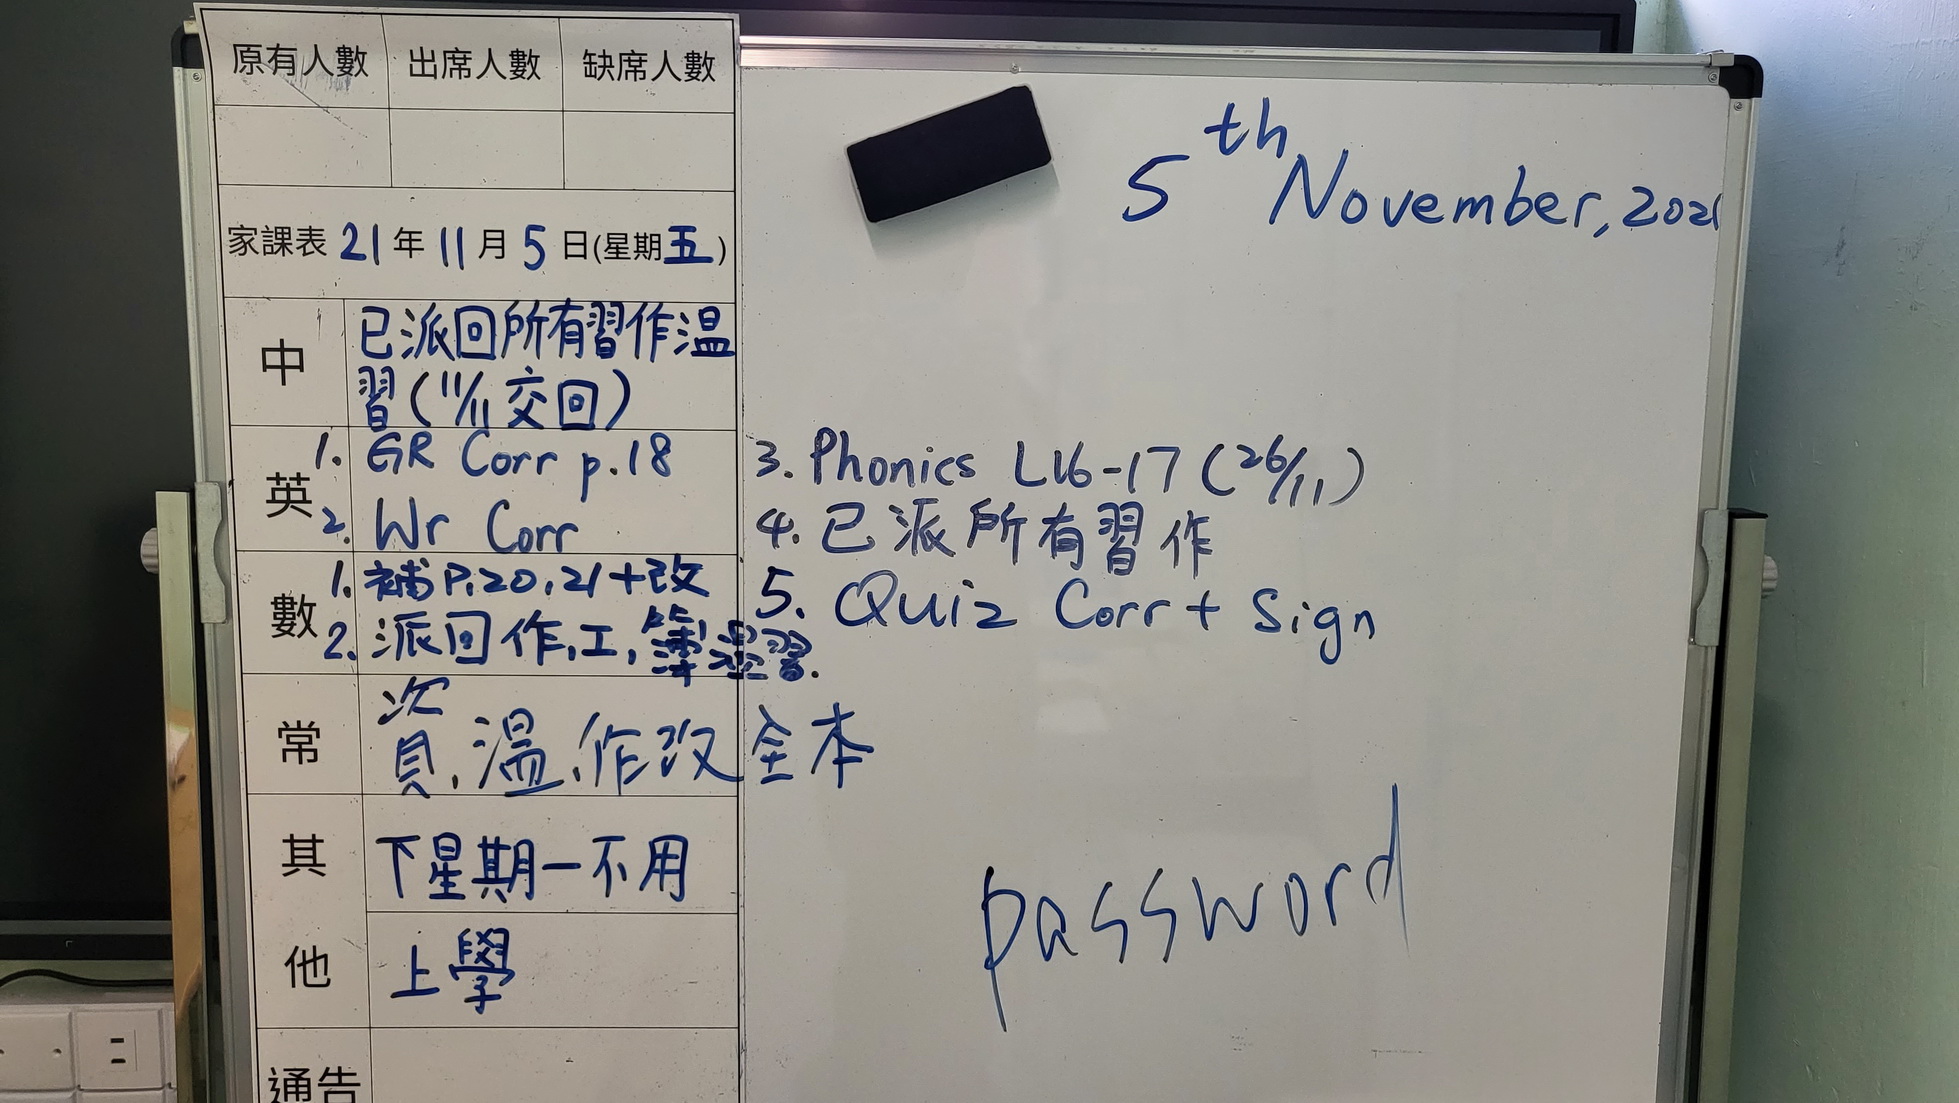 原有人數 出席人數 缺席人數
5th November, 2021
家課表 21 年 11 月 5 日(星期五)
中 已派回所有習作溫
習(11/11交回)
英 1. GR Corr p.18
2. Wr Corr
3. Phonics L16-17 (26/11)
4. 已派所有習作
5. Quiz Corr + Sign
數 1. 補P.20,21+改
2. 派回作,工,簿溫習.
常 資,溫,作改全本
其他 下星期一不用
上學
通告
password